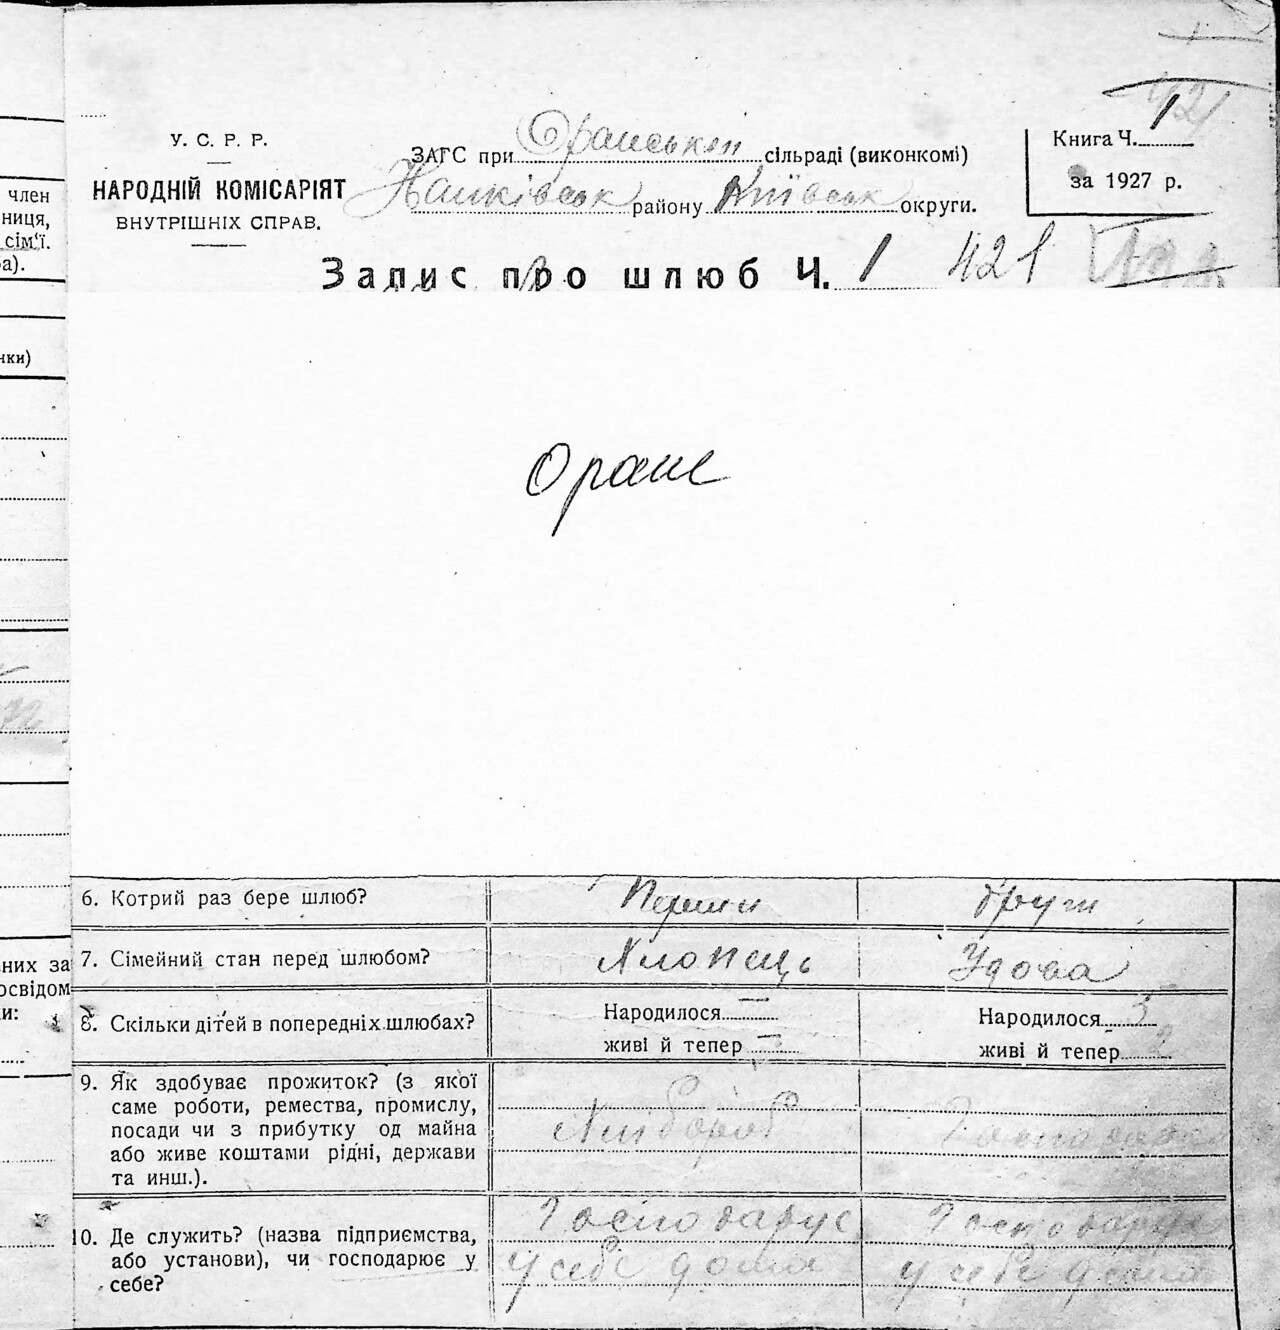 У. С. Р. Р.
НАРОДНІЙ КОМІСАРІЯТ
ВНУТРІШНІХ СПРАВ.
ЗАГС при Оранській сільраді (виконкомі)
району Київськ округи.
Книга Ч. 1
за 1927 р.
Запис про шлюб Ч. 1 421
Оране
член
ниця,
сім'ї.
а).
нки)
них за
освідом
и:
6. Котрий раз бере шлюб? Перший друг
7. Сімейний стан перед шлюбом? Хлопець Удова
8. Скільки дітей в попередніх шлюбах? Народилося — Народилося 3
живі й тепер — живі й тепер 2
9. Як здобуває прожиток? (з якої
саме роботи, ремества, промислу,
посади чи з прибутку од майна
або живе коштами рідні, держави
та инш.).
Хлібороб
10. Де служить? (назва підприємства,
або установи), чи господарює у
себе?
Господарує Господарує
у себе дома у себе дома